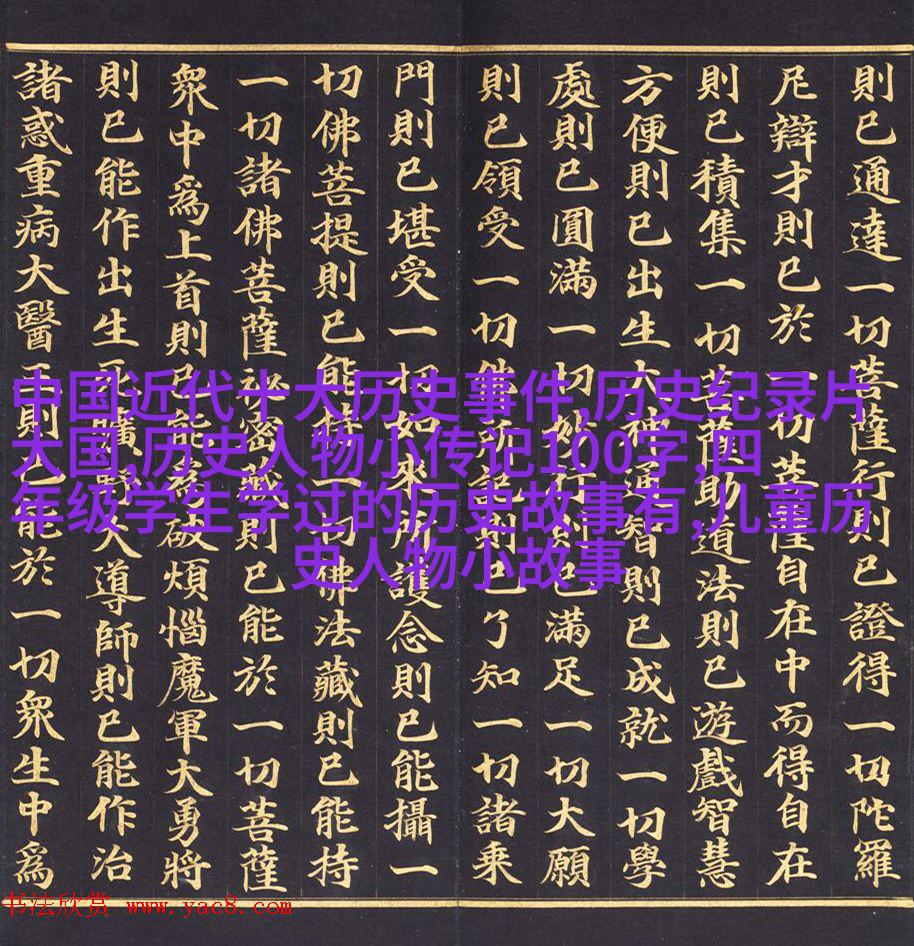 則已通達一切菩薩行則已證得一切陀羅
尼辯才則已於一切菩薩自在中而得自在
則已積集一切菩薩助道法則已遊戲智慧
方便則已出生大神通智則已成就一切學
處則已圓滿一切妙行則已滿足一切大願
則已領受一切佛所記則已了知一切諸乘
門則已堪受一切如來所護念則已能攝一
切佛菩提則已能一切佛法藏則已能持
一切諸佛菩薩祕密藏則已能於一切菩薩
衆中爲上首則已能爲破煩惱魔軍大勇將
則已能作出生死曠野大導師則已能作治
諸惑重病大醫王則已能於一切衆生中爲
中国近代十大历史事件,历史纪录片
大国,历史人物小传记100字,四
年级学生学过的历史故事有,儿童历
史人物小故事
书法欣赏 www.yac8.com